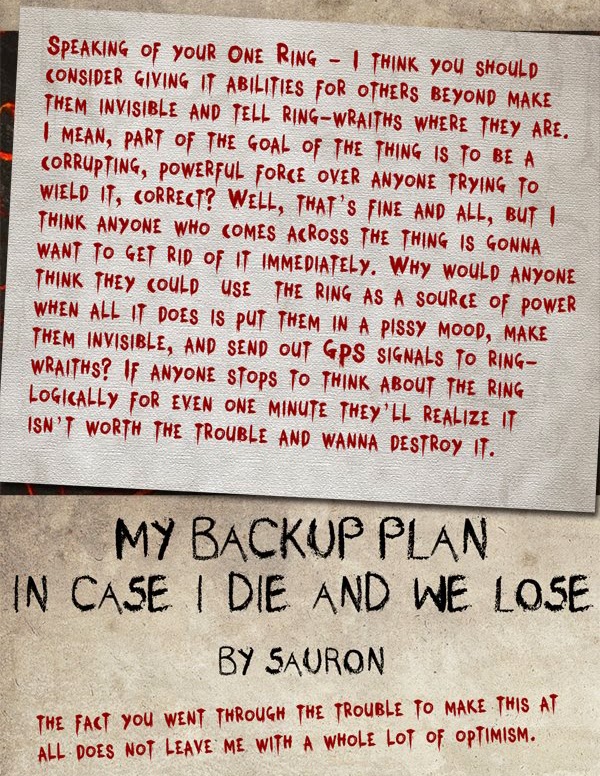 Speaking of your One Ring – I think you should
consider giving it abilities for others beyond make
them invisible and tell ring-wraiths where they are.
I mean, part of the goal of the thing is to be a
corrupting, powerful force over anyone trying to
wield it, correct? Well, that's fine and all, but I
think anyone who comes across the thing is gonna
want to get rid of it immediately. Why would anyone
think they could use the ring as a source of power
when all it does is put them in a pissy mood, make
them invisible, and send out GPS signals to ring-
wraiths? If anyone stops to think about the ring
logically for even one minute they'll realize it
isn't worth the trouble and wanna destroy it.
MY BACKUP PLAN
IN CASE I DIE AND WE LOSE
BY SAURON
the fact you went through the trouble to make this at
all does not leave me with a whole lot of optimism.